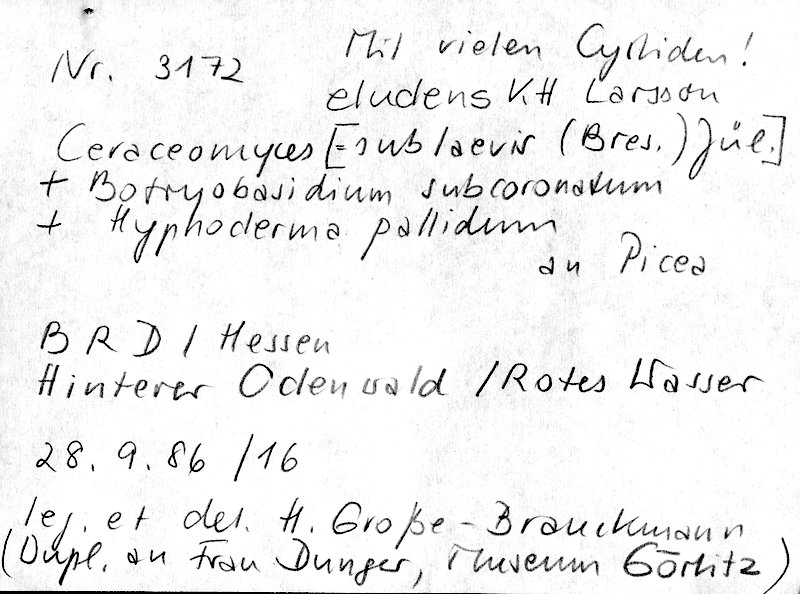 Nr. 3172
Mit vielen Cystiden!
eludens K.H Larsson
Ceraceomyces [= sublaevis (Bres.) Jül.]
+ Botryobasidium subcoronatum
+ Hyphoderma pallidum
an Picea
BRD / Hessen
Hinterer Odenwald / Rotes Wasser
28. 9. 86 / 16
leg. et det. H. Große-Brauckmann
(Dupl. an Frau Dunger, Museum Görlitz)